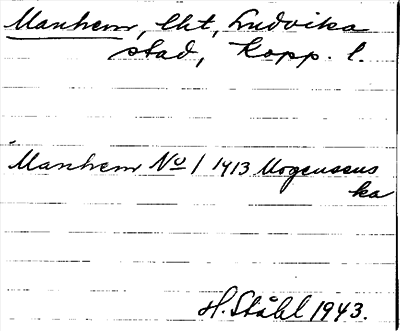 Manhem, lht, Ludvika
stad, Kopp. l.
Manhem No 1 1413 Mogensens
ka
H. Ståhl 1943.